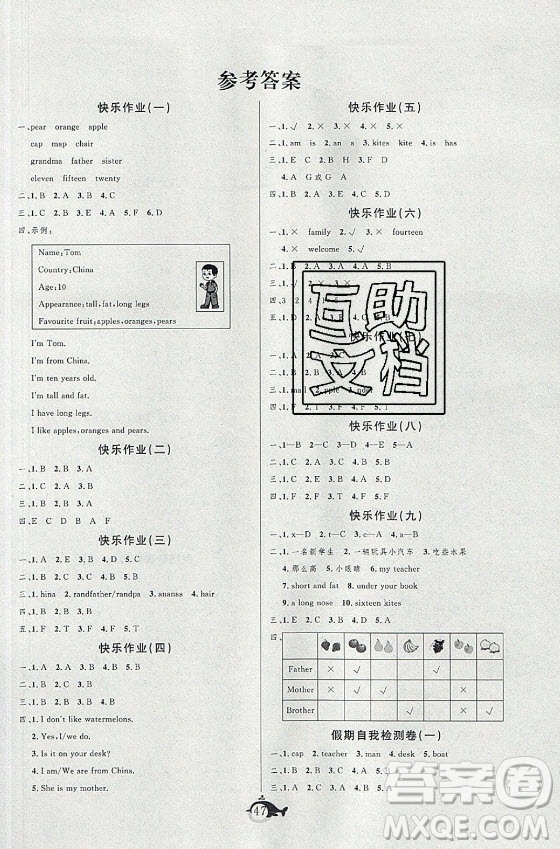 参考答案
快乐作业(一)
一、1. pear orange apple
cap map chair
grandma father sister
eleven fifteen twenty
二、1. B 2. A 3. B 4. C
三、1. C 2. E 3. A 4. B 5. F 6. D
四、示例:
Name: Tom
Country: China
Age: 10
Appearance: tall, fat, long legs
Favourite fruit: apples, oranges, pears
I'm Tom.
I'm from China.
I'm ten years old.
I'm tall and fat.
I have long legs.
I like apples, oranges and pears.
快乐作业(二)
一、1. B 2. B 3. A
二、1. C 2. A 3. B 4. A 5. A
三、1. A 2. B 3. B
四、E C D B A F
快乐作业(三)
一、1. A 2. E 3. D 4. C 5. B
二、1. hina 2. randfather/randpa 3. ananas 4. hair
三、1. A 2. A 3. B 4. A 5. A
四、1. F 2. F 3. T 4. T 5. T
快乐作业(四)
一、1. B 2. A 3. C
二、1. C 2. A 3. A 4. C 5. B
三、1. B 2. C 3. A 4. E 5. D
四、1. I don't like watermelons.
2. Yes, I/we do.
3. Is it on your desk?
4. I am/We are from China.
5. She is my mother.
快乐作业(五)
一、1. √ 2. × 3. × 4. × 5. ×
二、1. am is 2. an a 3. kites kite 4. is an
三、1. E C 2. D H 3. B F
4. A G或G A
快乐作业(六)
一、1. × family 2. √ 3. × fourteen
4. × welcome 5. √
二、1. B 2. A 3. A 4. A 5. B
三、1. √ 2. × 3.
四、3 2 4 1
快乐作业(七)
一、1.
二、1. A
三、1. mall 2.
四、1. F 2.
快乐作业(八)
一、1—B 2—C 3—D 4—A
二、1. B 2. A 3. B 4. A 5. B
三、1. C 2. D 3. A 4. B 5. E
四、1. F 2. F 3. T 4. T 5. F
快乐作业(九)
一、1. x—D 2. t—B 3. c—A 4. a—C
二、1. 一名新学生 2. 一辆玩具小汽车 3. 吃些水果
4. 那么高 5. 小眼睛 6. my teacher
7. short and fat 8. under your book
9. a long nose 10. sixteen kites
三、1. C 2. D 3. A 4. E 5. B
四、
Father × √
Mother × √ × ×
Brother √ × √
假期自我检测卷(一)
一、1. cap 2. teacher 3. man 4. desk 5. boat
二、1. C 2. A 3. D 4. B 5. C
三、1. C 2. B
47
互助文档
答案圈
MXQE.COM